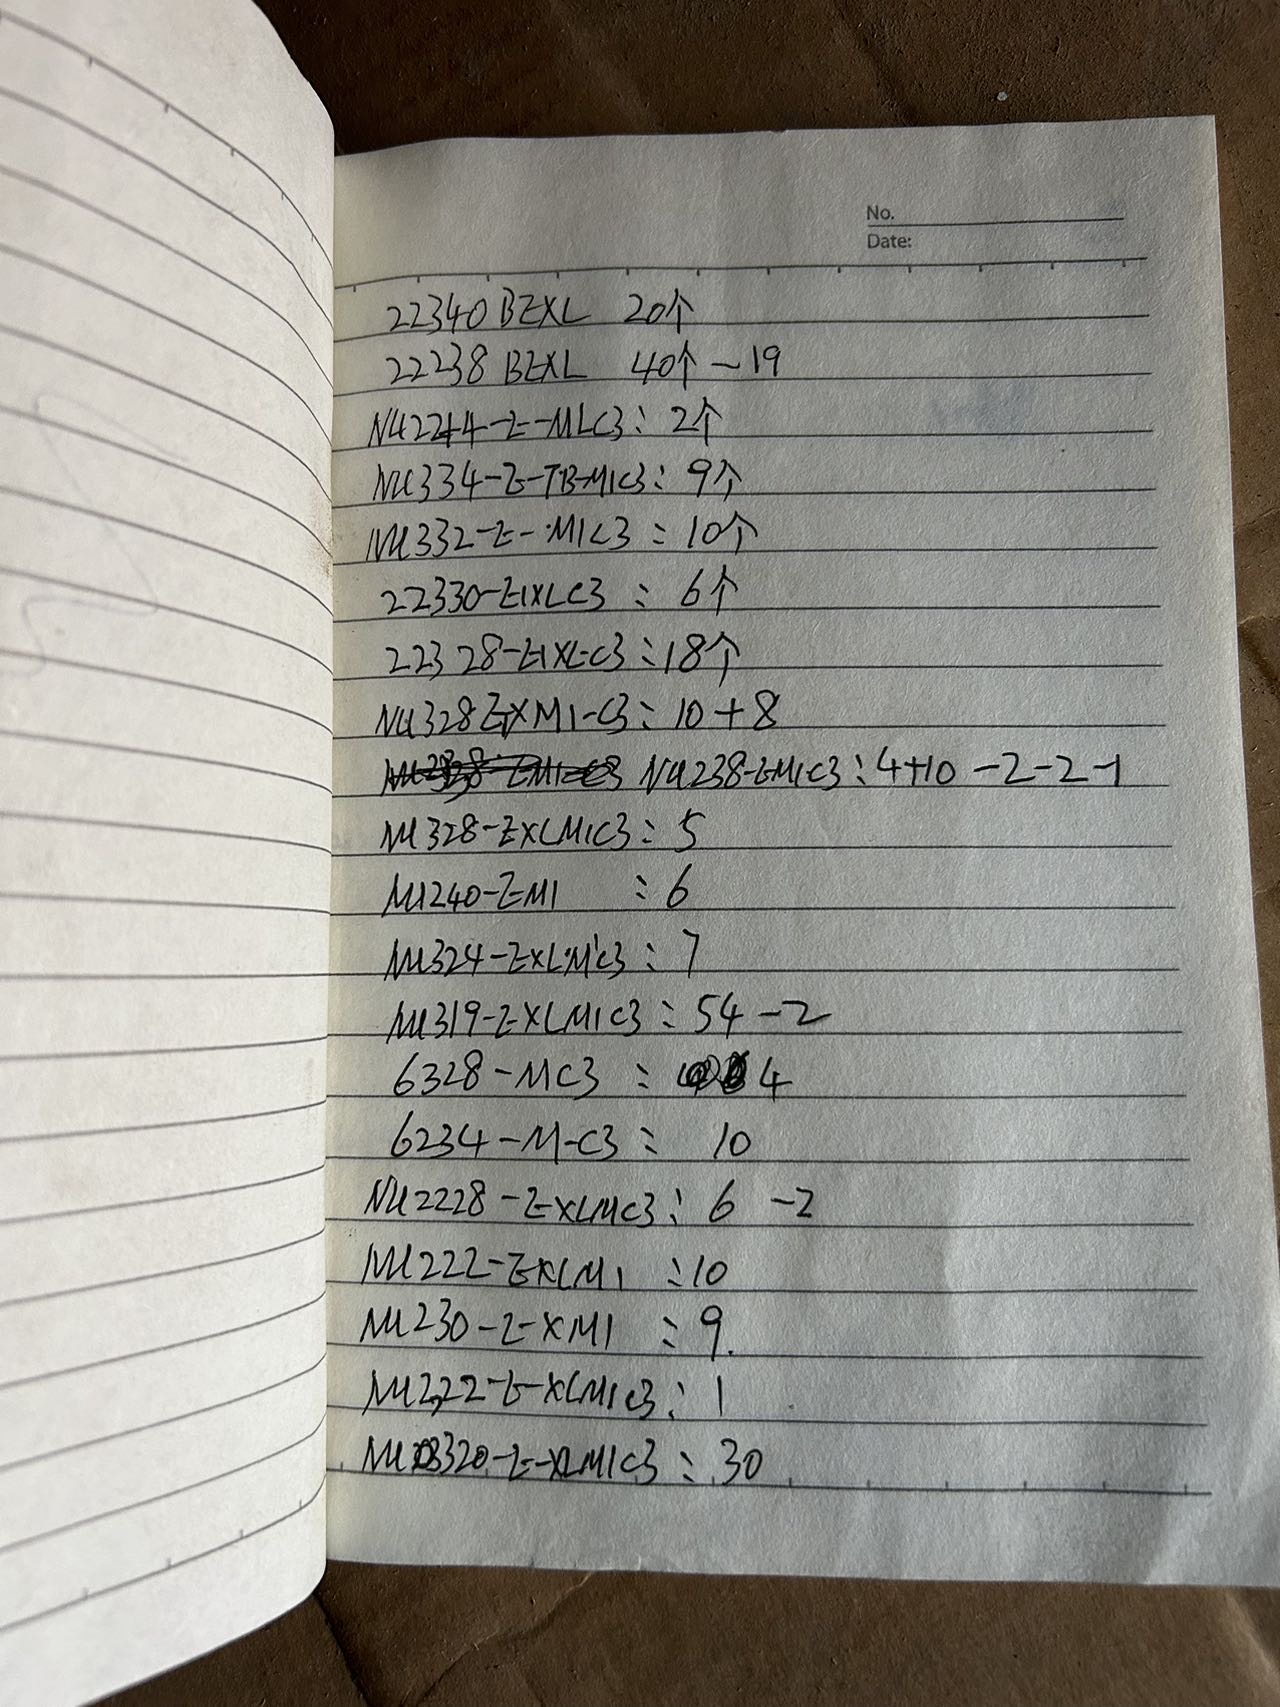 No.
Date:
22340 BEXL 20个
22238 BEXL 40个 -19
NU2244-E-MLC3: 2个
NU334-E-TB-M1C3: 9个
NU332-E-M1C3: 10个
22330-E1XLC3: 6个
22328-E1XLC3: 18个
NU328EXM1-C3: 10+8
NU238-EM1C3: 4+10-2-2-1
NU328-EXLM1C3: 5
NU240-EM1: 6
NU324-EXLM1C3: 7
NU319-EXLM1C3: 54-2
6328-MC3: 4
6234-M-C3: 10
NU2228-EXLMC3: 6 -2
NU222-EXLM1: 10
NU230-E-XM1: 9.
NU222-E-XLM1C3: 1
NU320-E-XLM1C3: 30